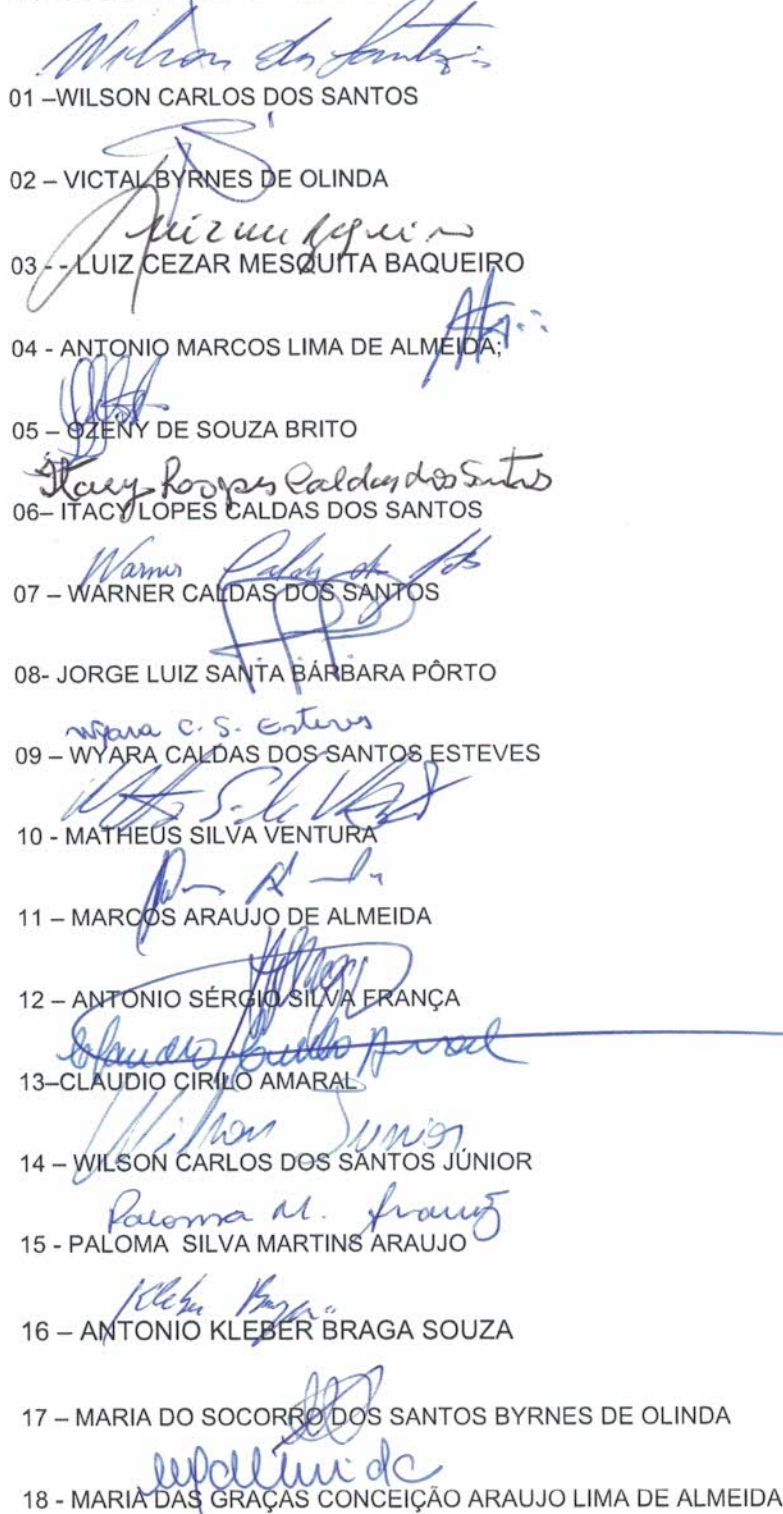 Wilson dos Santos
01 –WILSON CARLOS DOS SANTOS
02 – VICTAL BYRNES DE OLINDA
03 - - LUIZ CEZAR MESQUITA BAQUEIRO
04 - ANTONIO MARCOS LIMA DE ALMEIDA;
05 – OZENY DE SOUZA BRITO
Itacy Lopes Caldas dos Santos
06– ITACY LOPES CALDAS DOS SANTOS
Warner Caldas dos
07 – WARNER CALDAS DOS SANTOS
08- JORGE LUIZ SANTA BÁRBARA PÔRTO
Wyara C. S. Esteves
09 – WYARA CALDAS DOS SANTOS ESTEVES
10 - MATHEUS SILVA VENTURA
11 – MARCOS ARAUJO DE ALMEIDA
12 – ANTONIO SÉRGIO SILVA FRANÇA
Claudio Cirilo Amaral
13–CLAUDIO CIRILO AMARAL
Wilson Junior
14 – WILSON CARLOS DOS SANTOS JÚNIOR
Paloma M. Araujo
15 - PALOMA SILVA MARTINS ARAUJO
Kleber Braga
16 – ANTONIO KLEBER BRAGA SOUZA
17 – MARIA DO SOCORRO DOS SANTOS BYRNES DE OLINDA
18 - MARIA DAS GRAÇAS CONCEIÇÃO ARAUJO LIMA DE ALMEIDA